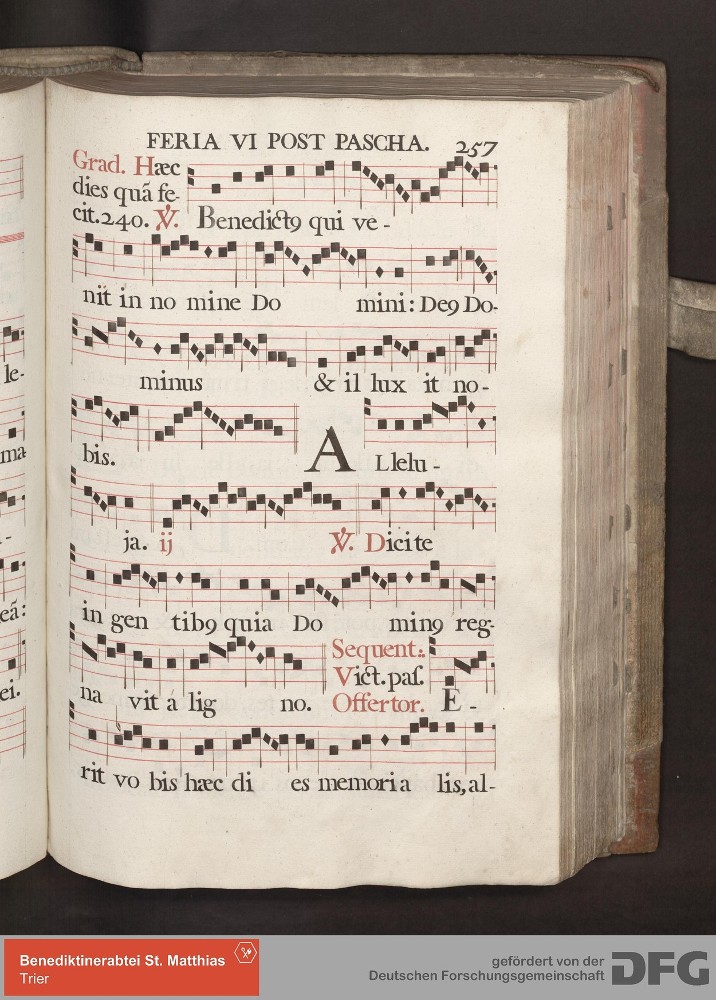 FERIA VI POST PASCHA. 257
Grad. Hæc
dies quã fe-
cit. 240. ℣. Benedictꝰ qui ve-
nit in no mine Do mini: Deꝰ Do-
minus & il lux it no-
bis. A Llelu-
ja. ij ℣. Dicite
in gen tibꝰ quia Do minꝰ reg-
na vit á lig no. Sequent:.
Vict. pas.
Offertor. E-
rit vo bis hæc di es memoria lis, al-
le-
ma
-
eã:
ei.
Benediktinerabtei St. Matthias
Trier
gefördert von der
Deutschen Forschungsgemeinschaft
DFG